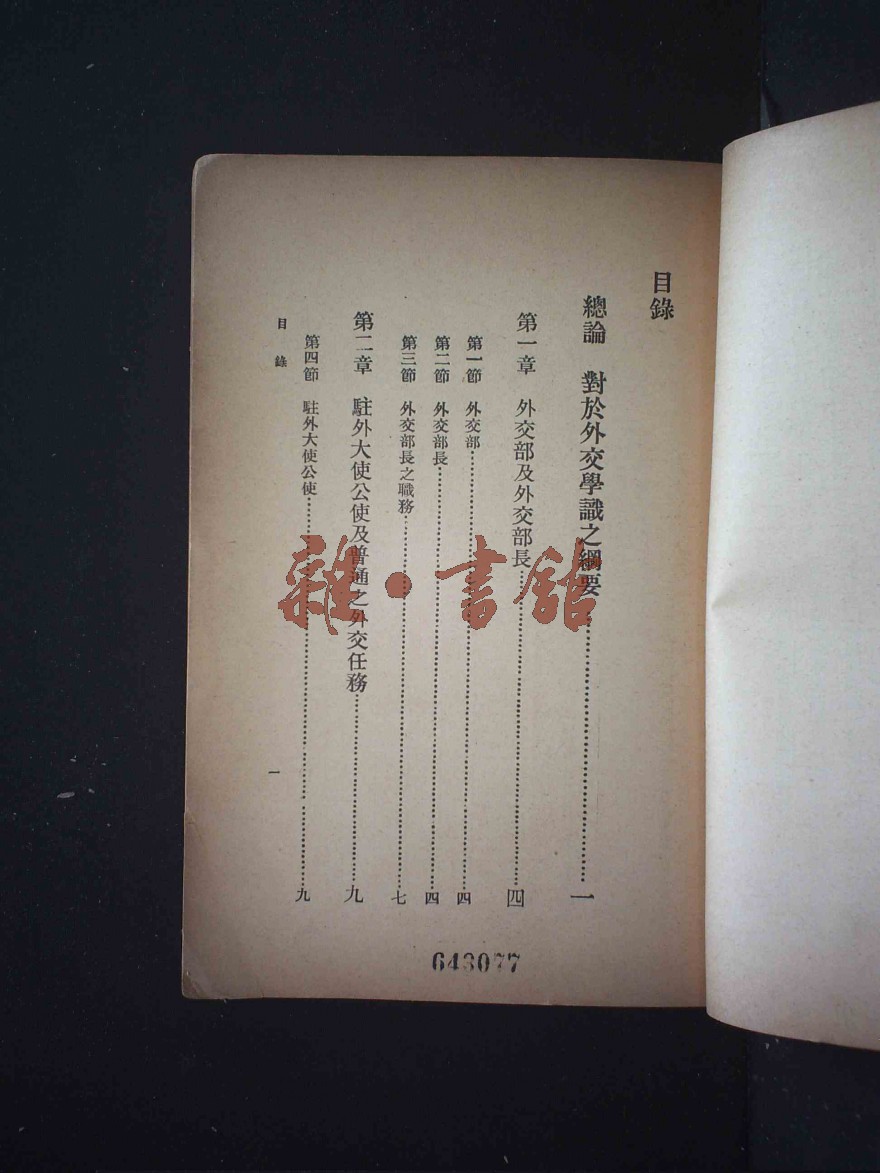 目錄
總論　對於外交學識之綱要……一
第一章　外交部及外交部長……四
第一節　外交部……四
第二節　外交部長……四
第三節　外交部長之職務……七
第二章　駐外大使公使及普通之外交任務……九
第四節　駐外大使公使……九
目錄
一
643077
雜·書館